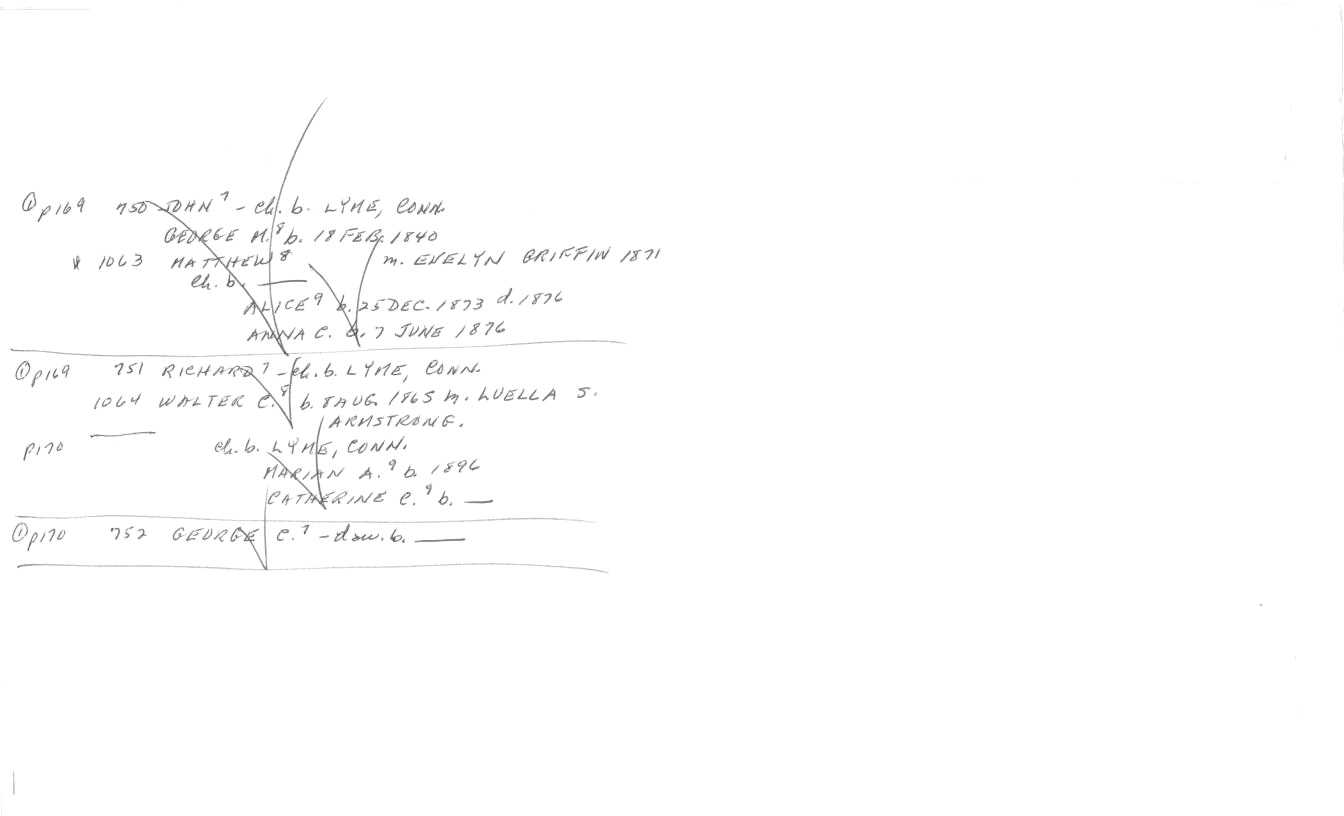 ① p169 750 JOHN⁷ - ch. b. LYME, CONN.
GEORGE M.⁸ b. 18 FEB. 1840
1063 MATTHEW⁸ m. EVELYN GRIFFIN 1871
ch. b. ——
ALICE⁹ b. 25 DEC. 1873 d. 1876
ANNA C. b. 7 JUNE 1876
① p169 751 RICHARD⁷ - ch. b. LYME, CONN.
1064 WALTER C.⁸ b. 8 AUG. 1865 m. LUELLA S.
ARMSTRONG.
p170 —— ch. b. LYME, CONN.
MARIAN A.⁹ b. 1896
CATHERINE C.⁹ b. ——
① p170 752 GEORGE C.⁷ - dau. b. ——